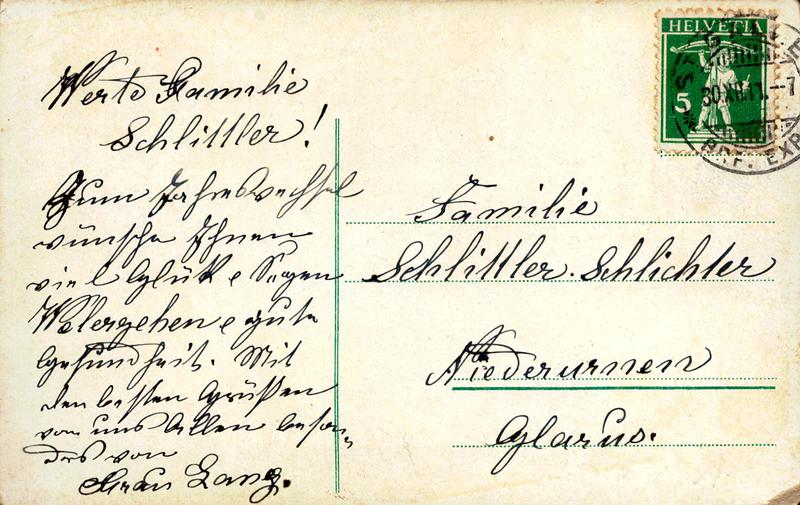 Werte Familie
Schlittler!
Zum Jahreswechsel
wünsche Ihnen
viel Glück & Segen
Wolergehen & gute
Gesundheit. Mit
den besten Grüßen
von uns Allen beson-
drs von
Frau Lang.
HELVETIA
5
30.XII.11.-7
BRF. EXP
Familie
Schlittler-Schlichter
Niederurnen
Glarus.